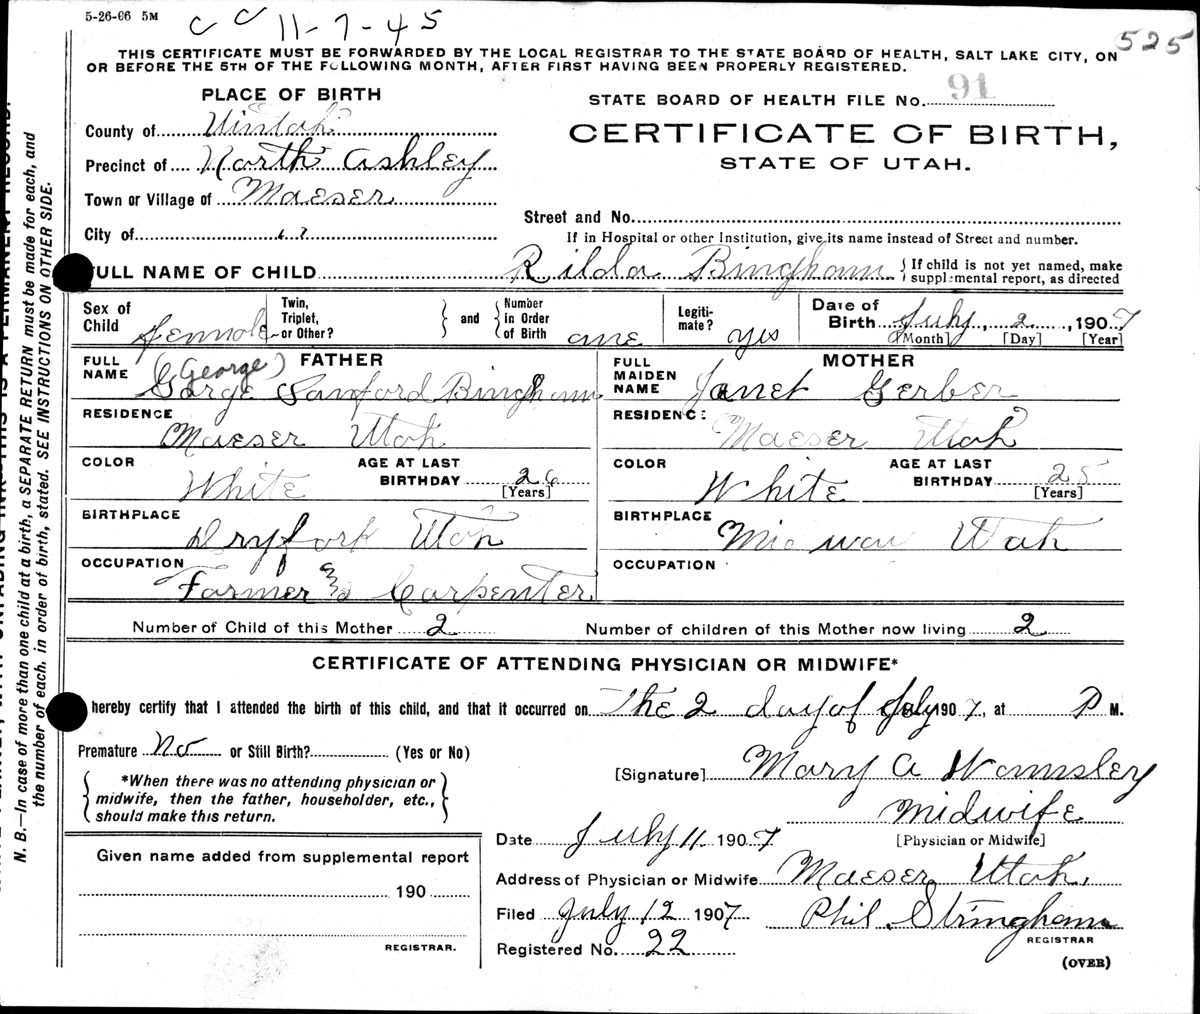 5-26-06 5M
C C 11-7-45
525
THIS CERTIFICATE MUST BE FORWARDED BY THE LOCAL REGISTRAR TO THE STATE BOARD OF HEALTH, SALT LAKE CITY, ON
OR BEFORE THE 5TH OF THE FOLLOWING MONTH, AFTER FIRST HAVING BEEN PROPERLY REGISTERED.
PLACE OF BIRTH
STATE BOARD OF HEALTH FILE No. 91
County of Uintah
CERTIFICATE OF BIRTH,
Precinct of North Ashley
STATE OF UTAH.
Town or Village of Maeser
Street and No.
City of
If in Hospital or other Institution, give its name instead of Street and number.
FULL NAME OF CHILD Rilda Bingham { If child is not yet named, make
supplemental report, as directed
Sex of Child Female
Twin, Triplet, or Other? } and { Number in Order of Birth one
Legiti-mate? yes
Date of Birth July, 2, 1907
[Month] [Day] [Year]
FULL NAME FATHER
(George)
Gorge Sanford Bingham
FULL MAIDEN NAME MOTHER
Janet Gerber
RESIDENCE
Maeser Utah
RESIDENCE:
Maeser Utah
COLOR White AGE AT LAST BIRTHDAY 26 [Years]
COLOR White AGE AT LAST BIRTHDAY 25 [Years]
BIRTHPLACE
Dryfork Utah
BIRTHPLACE
Midway Utah
OCCUPATION
Farmer & Carpenter
OCCUPATION
Number of Child of this Mother 2 Number of children of this Mother now living 2
CERTIFICATE OF ATTENDING PHYSICIAN OR MIDWIFE*
I hereby certify that I attended the birth of this child, and that it occurred on The 2 day of July 1907, at P M.
Premature No or Still Birth? (Yes or No)
[Signature] Mary A Wamsley
*When there was no attending physician or
midwife, then the father, householder, etc.,
should make this return.
Midwife
[Physician or Midwife]
Date July 11 1907
Given name added from supplemental report
Address of Physician or Midwife Maeser Utah.
190
Filed July 12 1907 Phil. Stringham
REGISTRAR
REGISTRAR.
Registered No. 22
(OVER)
N. B.—In case of more than one child at a birth, a SEPARATE RETURN must be made for each, and
the number of each, in order of birth, stated. SEE INSTRUCTIONS ON OTHER SIDE.